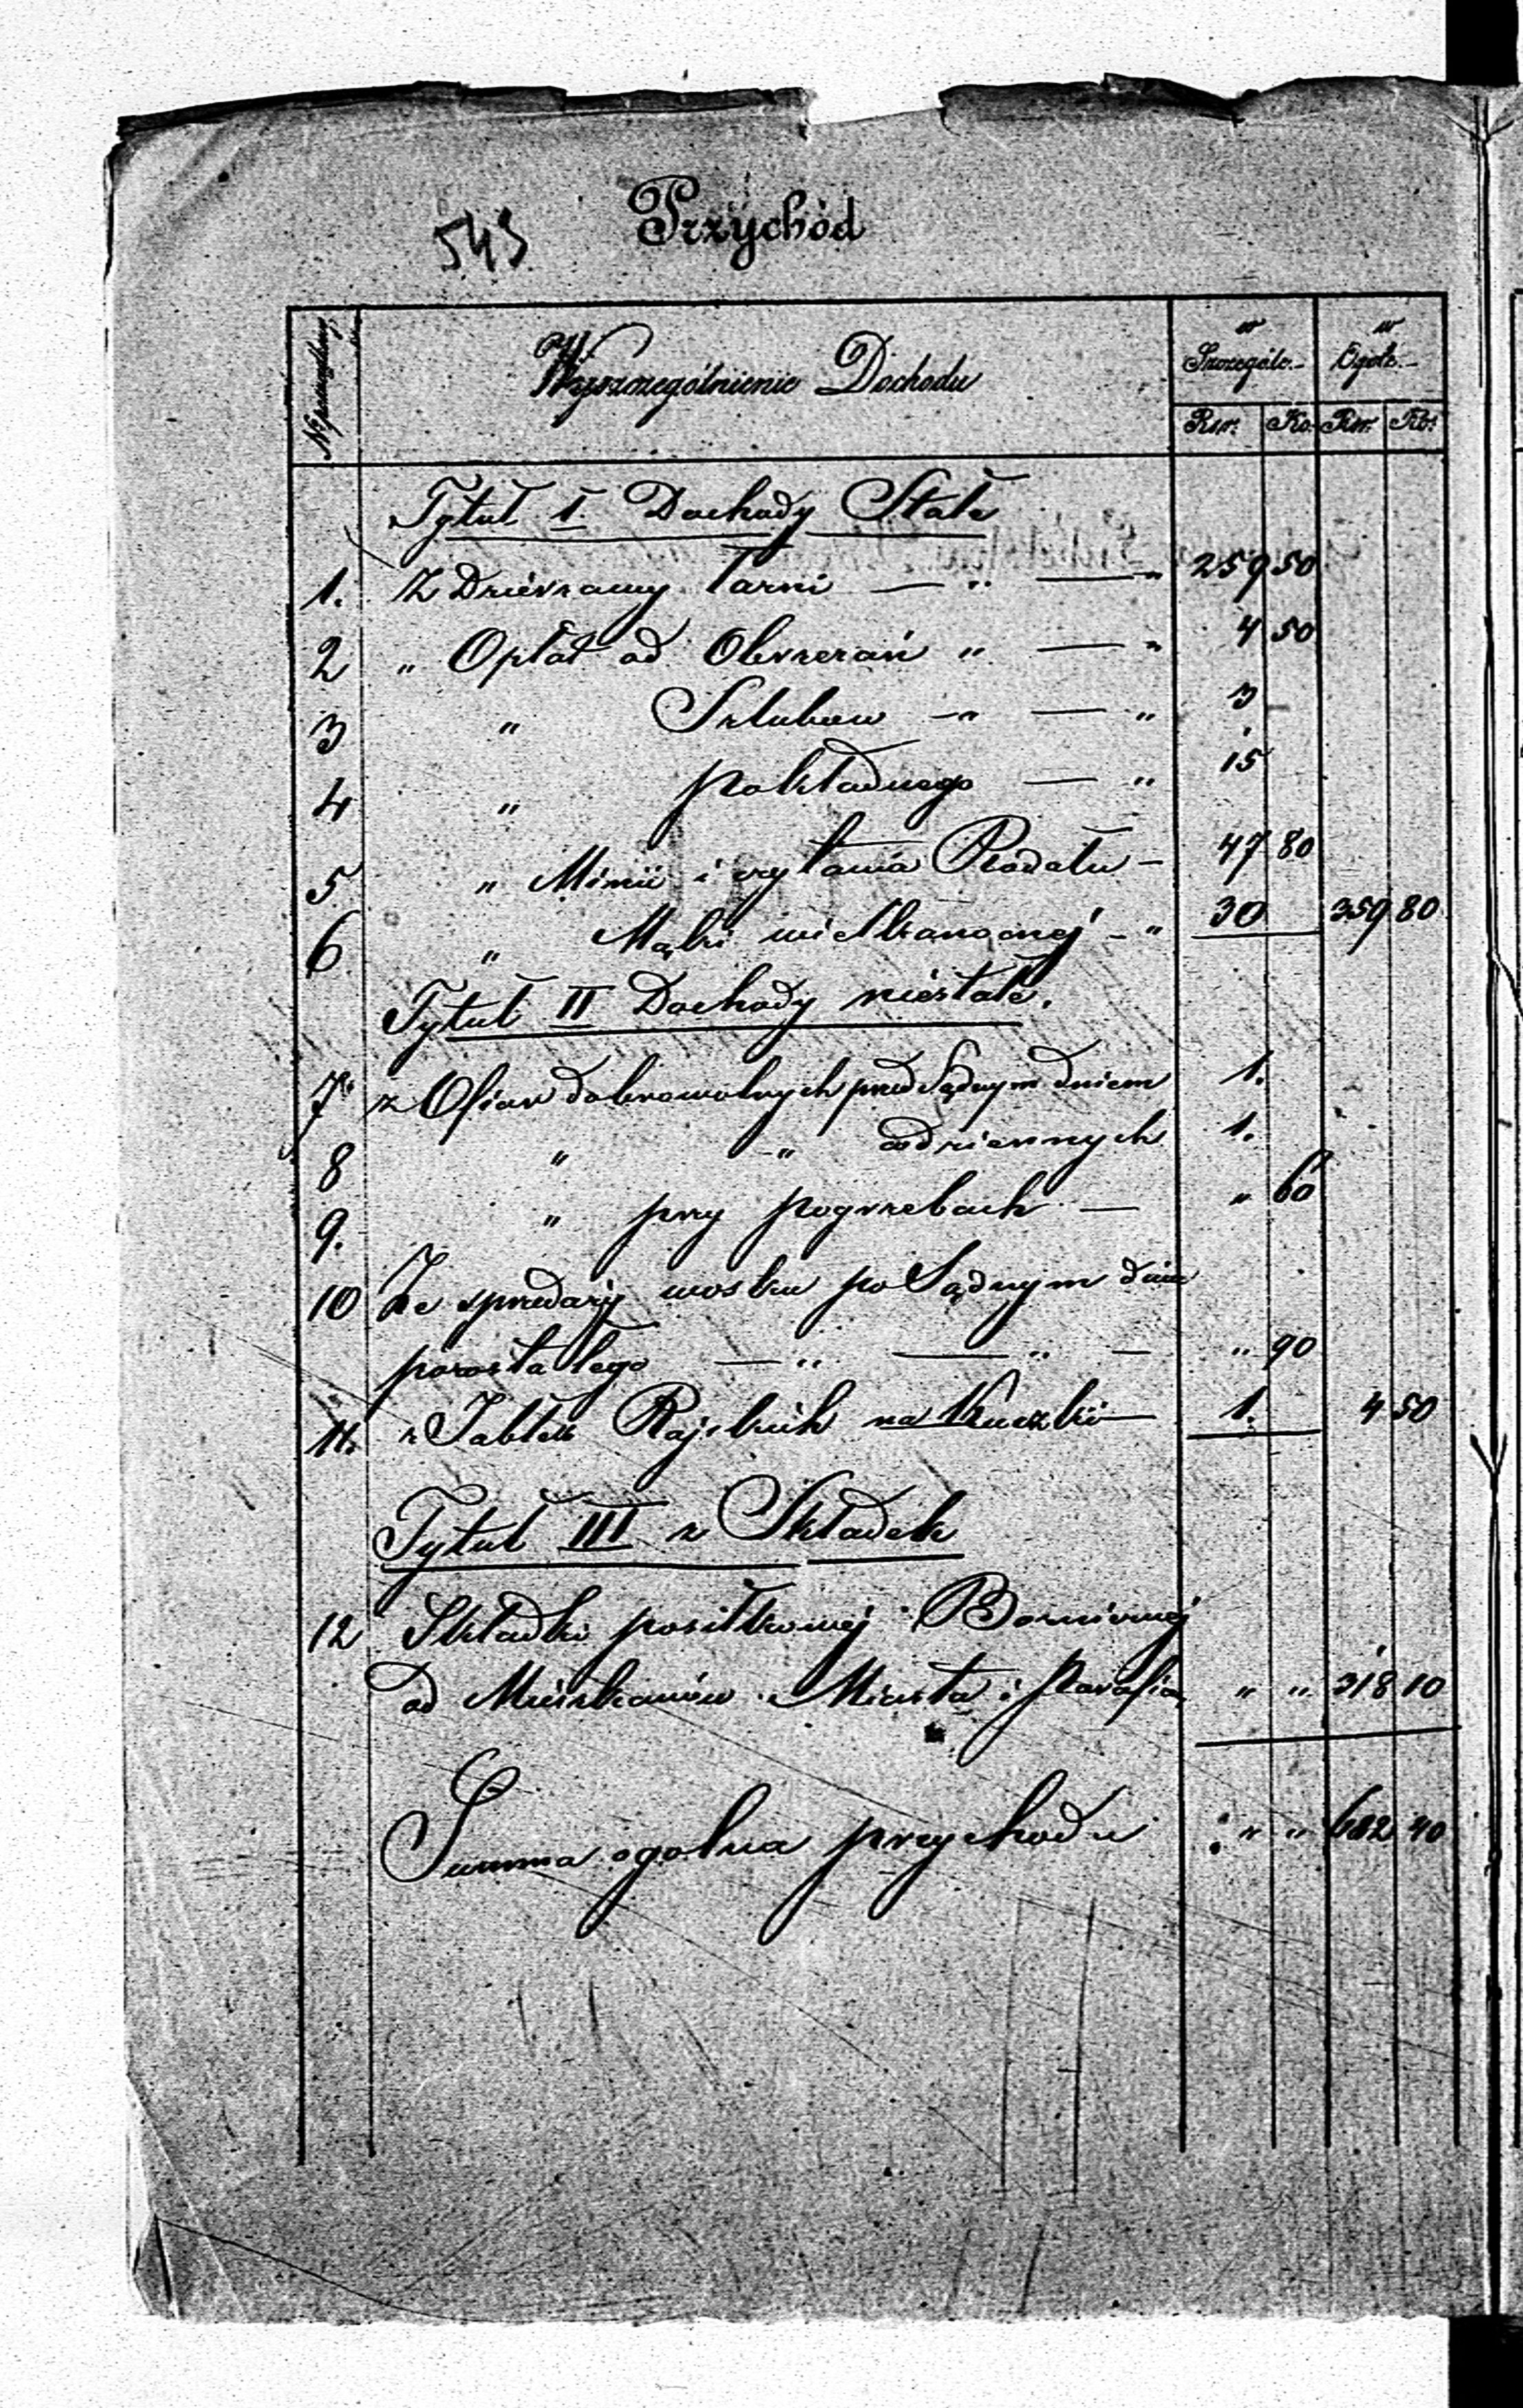 543
Przychód
Nº porządkowy
Wyszczególnienie Dochodu
w Szczególe.- w Ogóle.-
Rsr. Ko. Rsr. Ko:
Tytuł I Dochody Stałe
1. Z Dzierżawy Łazni — „ — „ 259 50
2 „ Opłat od Obrzezań „ — „ 4 50
3 „ Szlubow — „ — „ 3
4 „ pokładnego — „ 15
5 „ Minii i czytania Rodału — 47 80
6 „ Mąki wielkanocnej — „ 30 359 80
Tytuł II Dochody niestałe.
7. z Ofiar dobrowolnych przed Sądnym dniem 1.
8 „ „ codziennych 1.
9. „ przy pogrzebach — „ 60
10 Ze sprzedaży wosku po Sądnym dniu
pozostałego — „ — „ — „ 90
11. z Jabłek Rajskich na Kuczki — 1. 4 50
Tytuł III z Składek
12 Składki posiłkowej Boznicznej
od Mieszkanców Miasta i Parafia „ „ 318 10
Summa ogolna przychodu „ „ 682 40